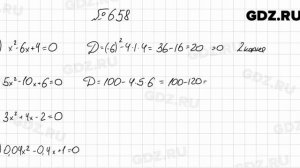 GDZ.RU
№658
) x²-6x+4=0 D=(-6)²-4·1·4=36-16=20 >0 2 корня
5x²-10x+6=0 D=100-4·5·6=100-120=
3x²+4x-2=0
) 0,04x²-0,4x+1=0
GDZ.RU